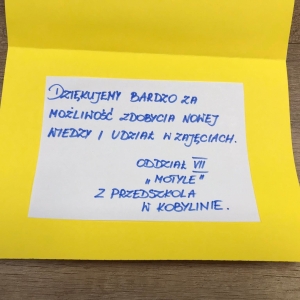 DZIĘKUJEMY BARDZO ZA
MOŻLIWOŚĆ ZDOBYCIA NOWEJ
WIEDZY I UDZIAŁ W ZAJĘCIACH.
ODDZIAŁ VII
„MOTYLE"
Z PRZEDSZKOLA
W KOBYLINIE.